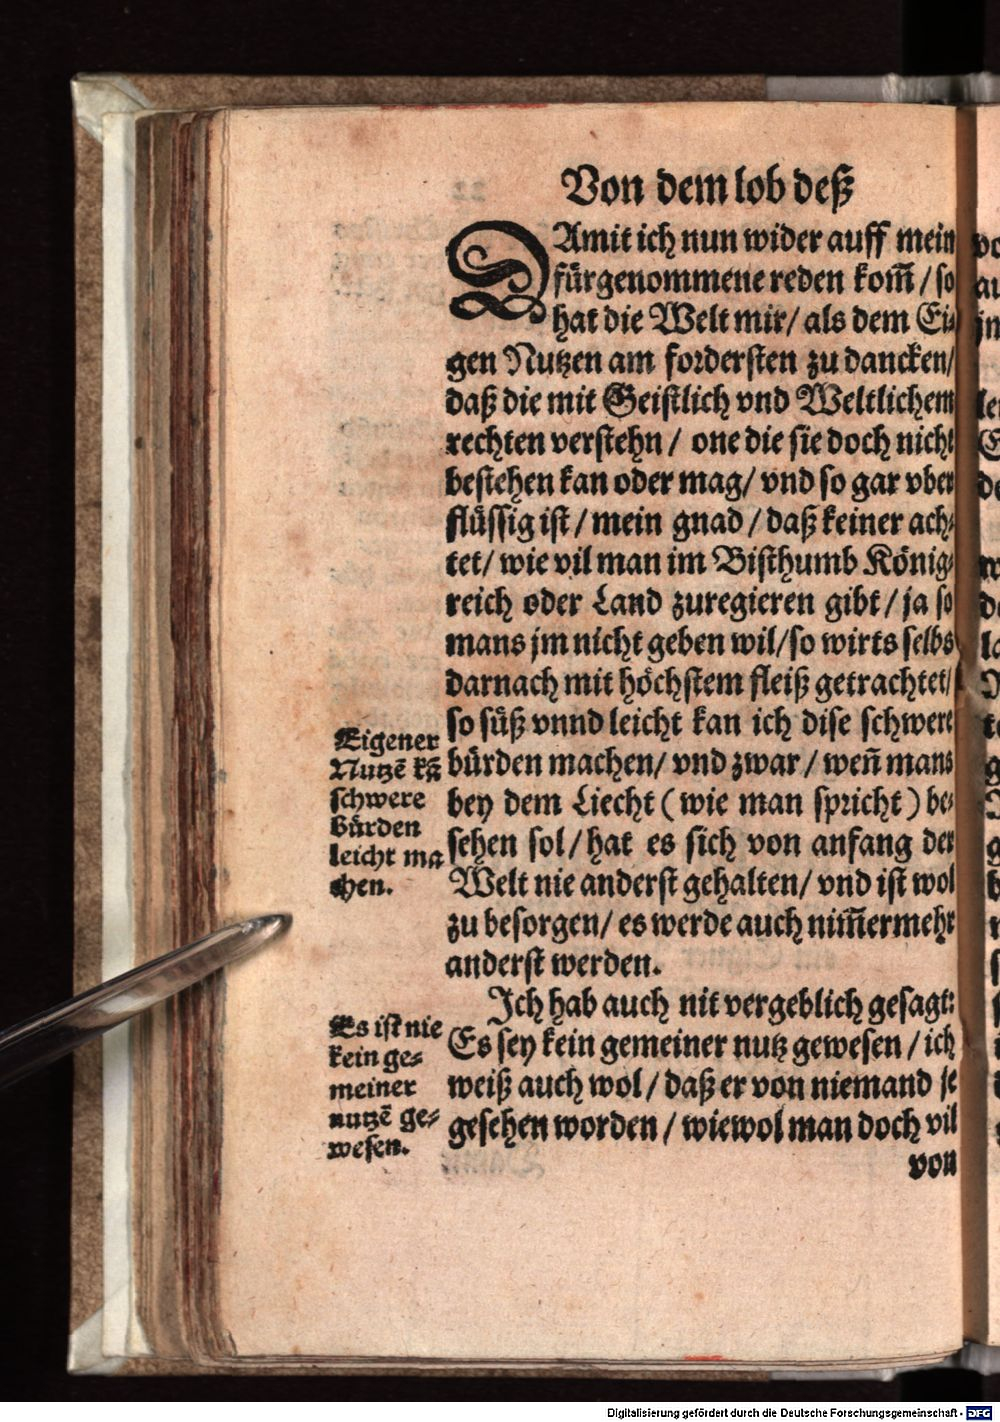 Von dem lob deß
DAmit ich nun wider auff mein
fürgenommene reden kom̃ / so
hat die Welt mir / als dem Ei-
gen Nutzen am fordersten zu dancken /
daß die mit Geistlich vnd Weltlichem
rechten verstehn / one die sie doch nicht
bestehen kan oder mag / vnd so gar vber
flüssig ist / mein gnad / daß keiner ach-
tet / wie vil man im Bisthumb König-
reich oder Land zuregieren gibt / ja so
mans jm nicht geben wil / so wirts selbs
darnach mit höchstem fleiß getrachtet /
so süß vnnd leicht kan ich dise schwere
bürden machen / vnd zwar / weñ mans
bey dem Liecht ( wie man spricht ) be-
sehen sol / hat es sich von anfang der
Welt nie anderst gehalten / vnd ist wol
zu besorgen / es werde auch nim̃ermehr
anderst werden.
Eigener
Nutzē kã
schwere
Bürden
leicht ma
chen.
Ich hab auch nit vergeblich gesagt:
Es sey kein gemeiner nutz gewesen / ich
weiß auch wol / daß er von niemand je
gesehen worden / wiewol man doch vil
von
Es ist nie
kein ge-
meiner
nutzē ge-
wesen.
Digitalisierung gefördert durch die Deutsche Forschungsgemeinschaft - DFG